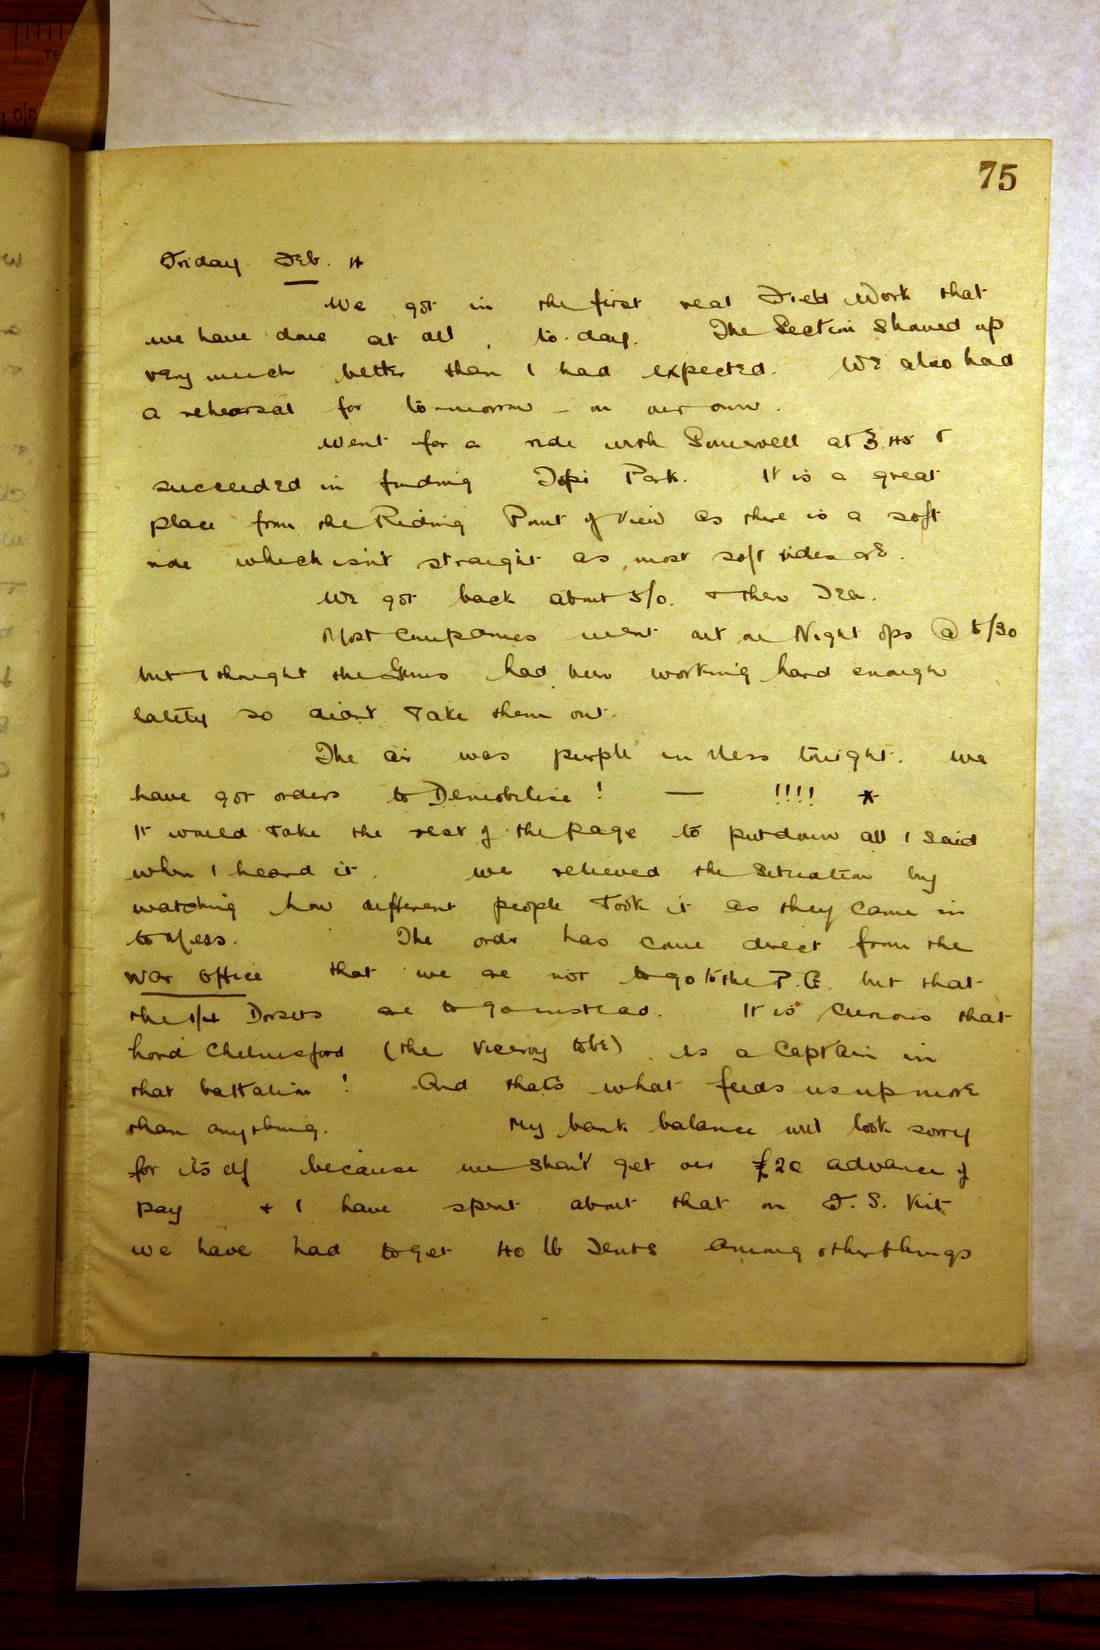 75
Friday Feb. 4
We got in the first real Field Work that
we have done at all, to-day. The Section Showed up
very much better than I had expected. We also had
a rehearsal for to-morrow - on our own.
Went for a ride with Somervell at 3.45 &
succeeded in finding Topi Park. It is a great
place from the Riding Point of View as there is a soft
ride which isn't straight as most soft rides are.
We got back about 5/0. & then Tea.
Most Companies went out on Night ops @ 5/30
but I thought the Guns had been working hard enough
lately so didn't Take them out.
The air was purple in Mess tonight. We
have got orders to Demobilise! — !!!! *
It would take the rest of the page to put down all I said
when I heard it. We relieved the Situation by
watching how different people Took it as they came in
to Mess. The order has come direct from the
War Office that we are not to go to the P.G. but that
the 1/4 Dorsets are to go instead. It is curious that
Lord Chelmsford (the Viceroy to be) is a Captain in
that battalion! And that's what feeds us up more
than anything. My bank balance will look sorry
for itself because we shan't get our £20 advance of
pay & I have spent about that on F.S. Kit
We have had to get 40 lb Tents among other things